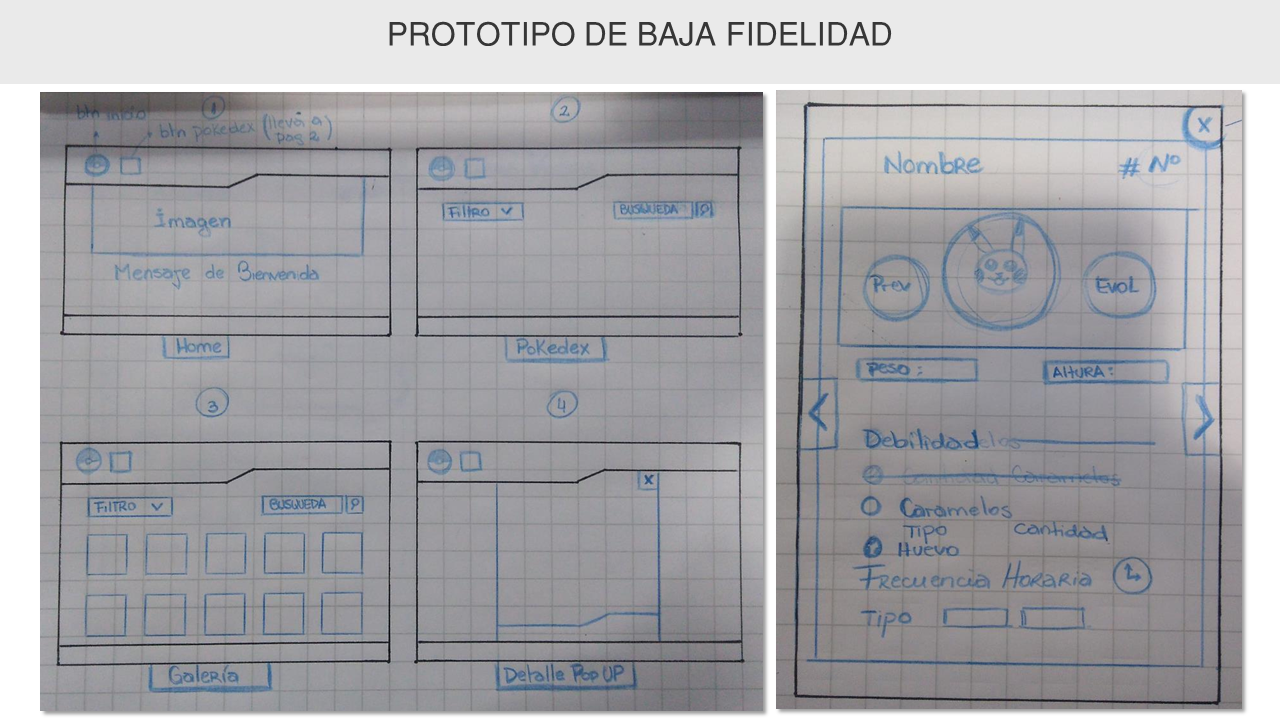 PROTOTIPO DE BAJA FIDELIDAD
btn inicio
1
btn pokedex (lleva a
pag 2)
Imagen
Mensaje de Bienvenida
Home
2
Filtro
BUSQUEDA
Pokedex
3
Filtro
BUSQUEDA
Galería
4
X
Detalle Pop UP
X
Nombre
# Nº
Prev
Evol
Peso :
Altura :
Debilidades
Cantidad Caramelos
Caramelos
Tipo Cantidad
Huevo
Frecuencia Horaria
Tipo